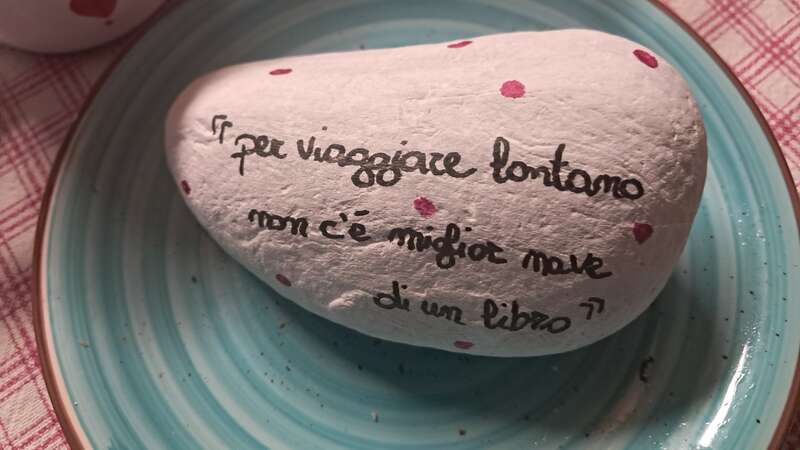 "per viaggiare lontano
non c'é miglior nave
di un libro"